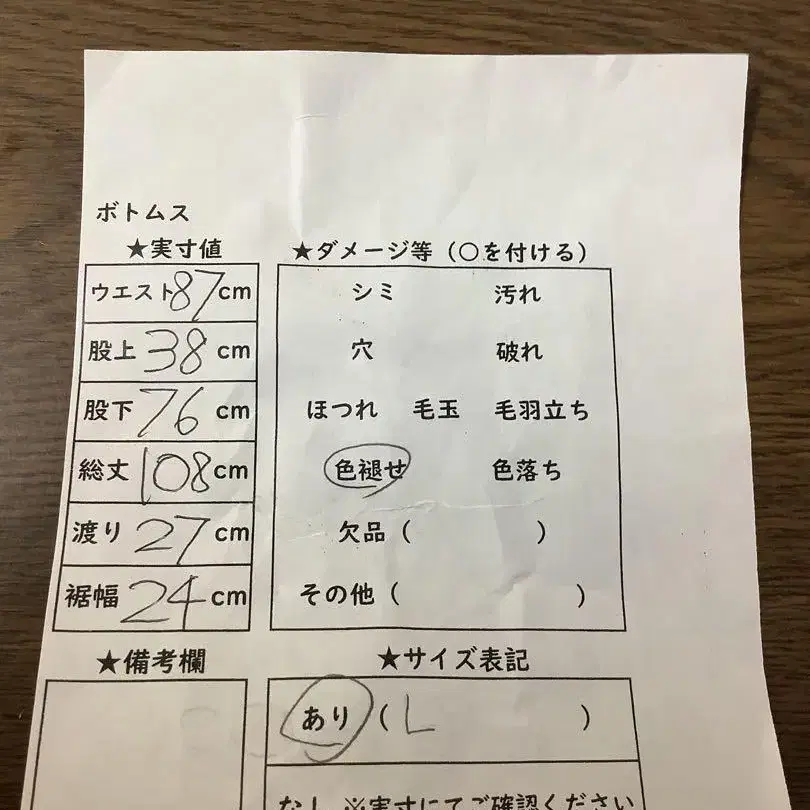 ボトムス
★実寸値
ウエスト87cm
股上 38 cm
股下 76 cm
総丈 108cm
渡り 27 cm
裾幅 24 cm
★ダメージ等（○を付ける）
シミ 汚れ
穴 破れ
ほつれ 毛玉 毛羽立ち
色褪せ 色落ち
欠品（ ）
その他（ ）
★備考欄
★サイズ表記
あり（L ）
なし ※実寸にてご確認ください